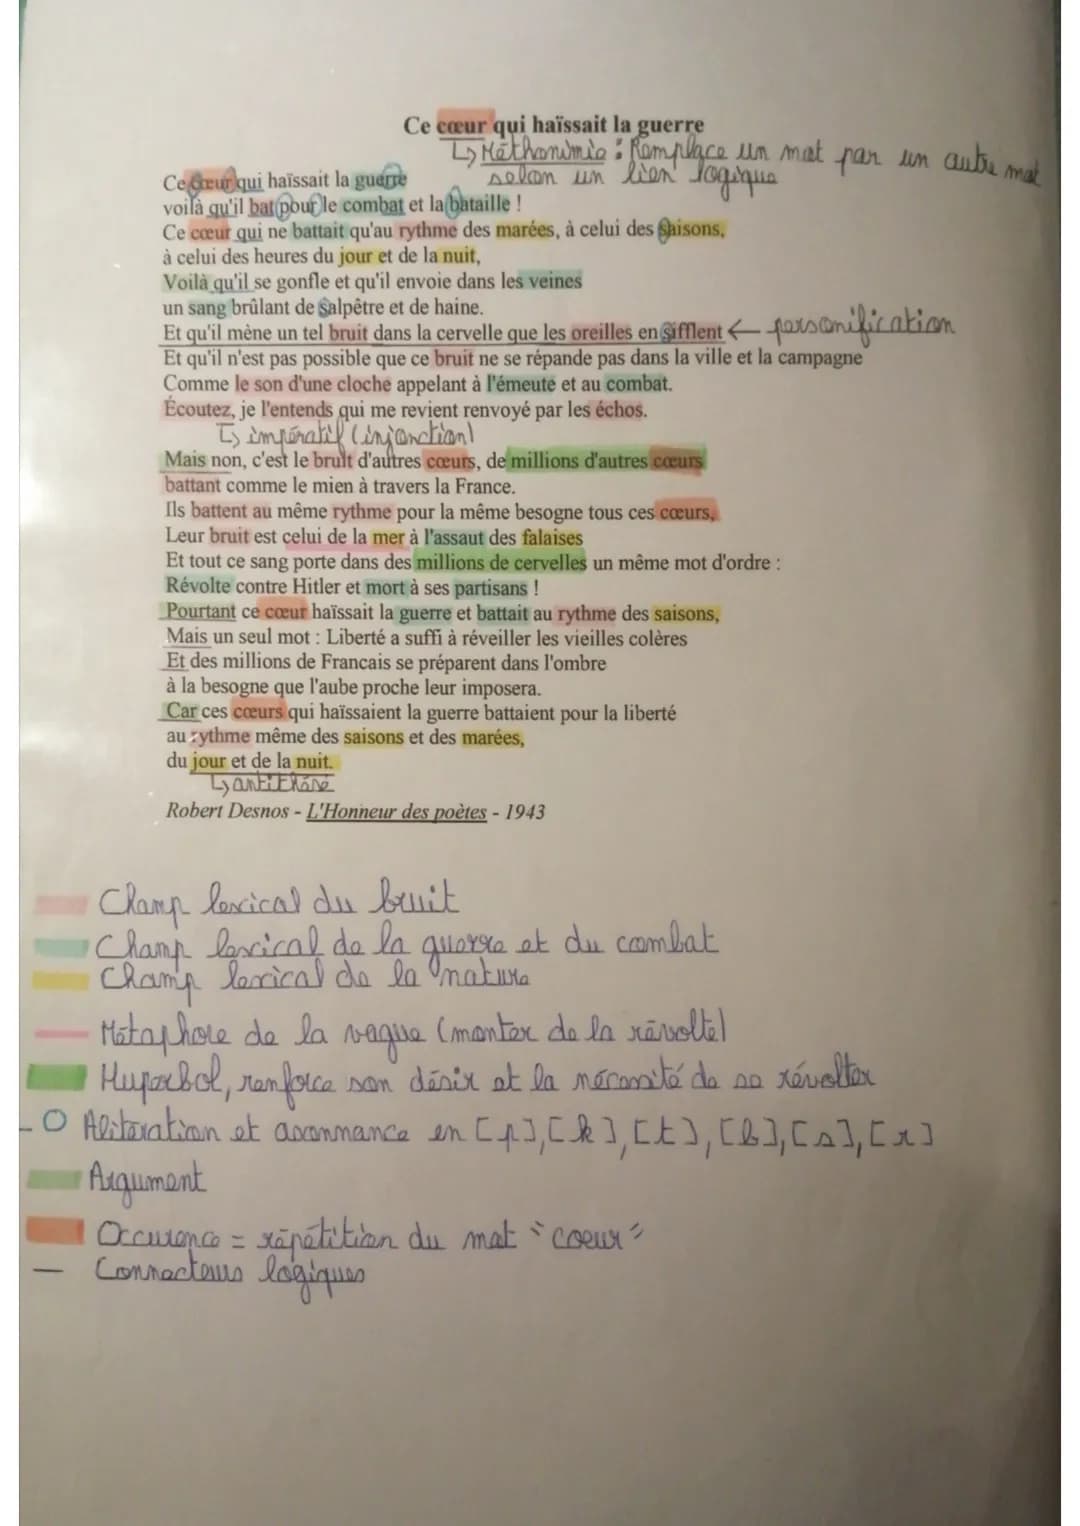 Ce cœur qui haïssait la guerre
↳ Méthonimie : Remplace un mot par un autre mot
selon un lien logique
Ce cœur qui haïssait la guerre
voilà qu'il bat pour le combat et la bataille !
Ce cœur qui ne battait qu'au rythme des marées, à celui des saisons,
à celui des heures du jour et de la nuit,
Voilà qu'il se gonfle et qu'il envoie dans les veines
un sang brûlant de salpêtre et de haine.
Et qu'il mène un tel bruit dans la cervelle que les oreilles en sifflent ← personification
Et qu'il n'est pas possible que ce bruit ne se répande pas dans la ville et la campagne
Comme le son d'une cloche appelant à l'émeute et au combat.
Écoutez, je l'entends qui me revient renvoyé par les échos.
↳ impératif (injonction)
Mais non, c'est le bruit d'autres cœurs, de millions d'autres cœurs
battant comme le mien à travers la France.
Ils battent au même rythme pour la même besogne tous ces cœurs,
Leur bruit est celui de la mer à l'assaut des falaises
Et tout ce sang porte dans des millions de cervelles un même mot d'ordre :
Révolte contre Hitler et mort à ses partisans !
Pourtant ce cœur haïssait la guerre et battait au rythme des saisons,
Mais un seul mot : Liberté a suffi à réveiller les vieilles colères
Et des millions de Francais se préparent dans l'ombre
à la besogne que l'aube proche leur imposera.
Car ces cœurs qui haïssaient la guerre battaient pour la liberté
au rythme même des saisons et des marées,
du jour et de la nuit.
↳ antithèse
Robert Desnos - L'Honneur des poètes - 1943
Champ lexical du bruit
Champ lexical de la guerre et du combat
Champ lexical de la nature
Métaphore de la vague (monter de la révolte)
Hyperbol, renforce son désir et la nécessité de se révolter
O Alitération et assonnance en [p], [k], [t], [b], [s], [r]
Argument
Occurence = répétition du mot "coeur"
— Connecteurs logiques